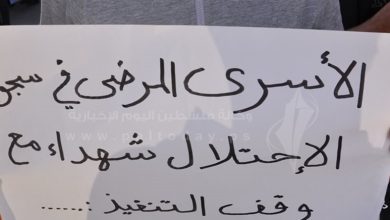 الأسرى المرضى في سجن
وكالة فلسطين اليوم الإخبارية
www.paltoday.ps
الإحتلال شهداء مع
وقف التنفيذ :......